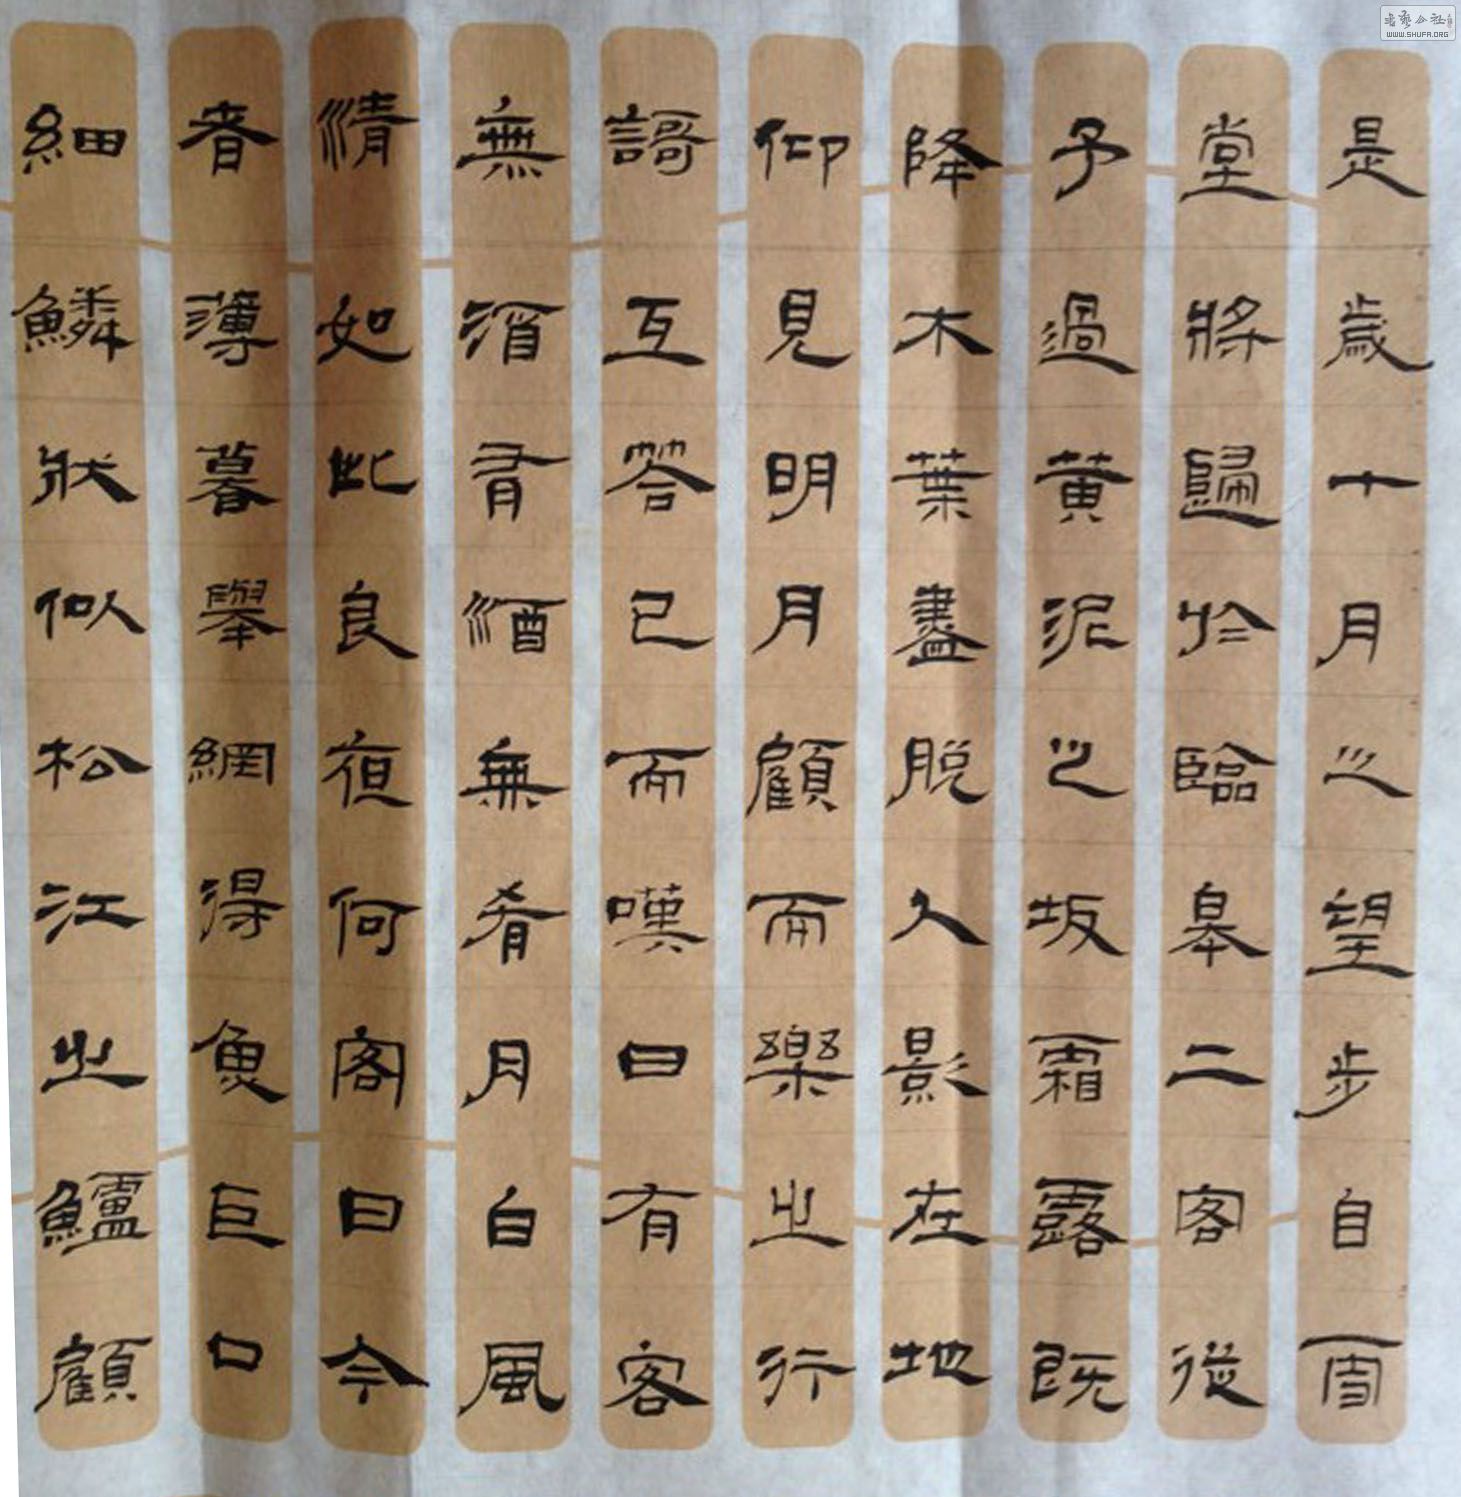 是歲十月之望步自雪
堂將歸於臨皋二客從
予過黃泥之坂霜露既
降木葉盡脫人影在地
仰見明月顧而樂之行
謌互答已而嘆曰有客
無酒有酒無肴月白風
清如此良夜何客曰今
者薄暮舉網得魚巨口
細鱗狀似松江之鱸顧
WWW.SHUFA.ORG